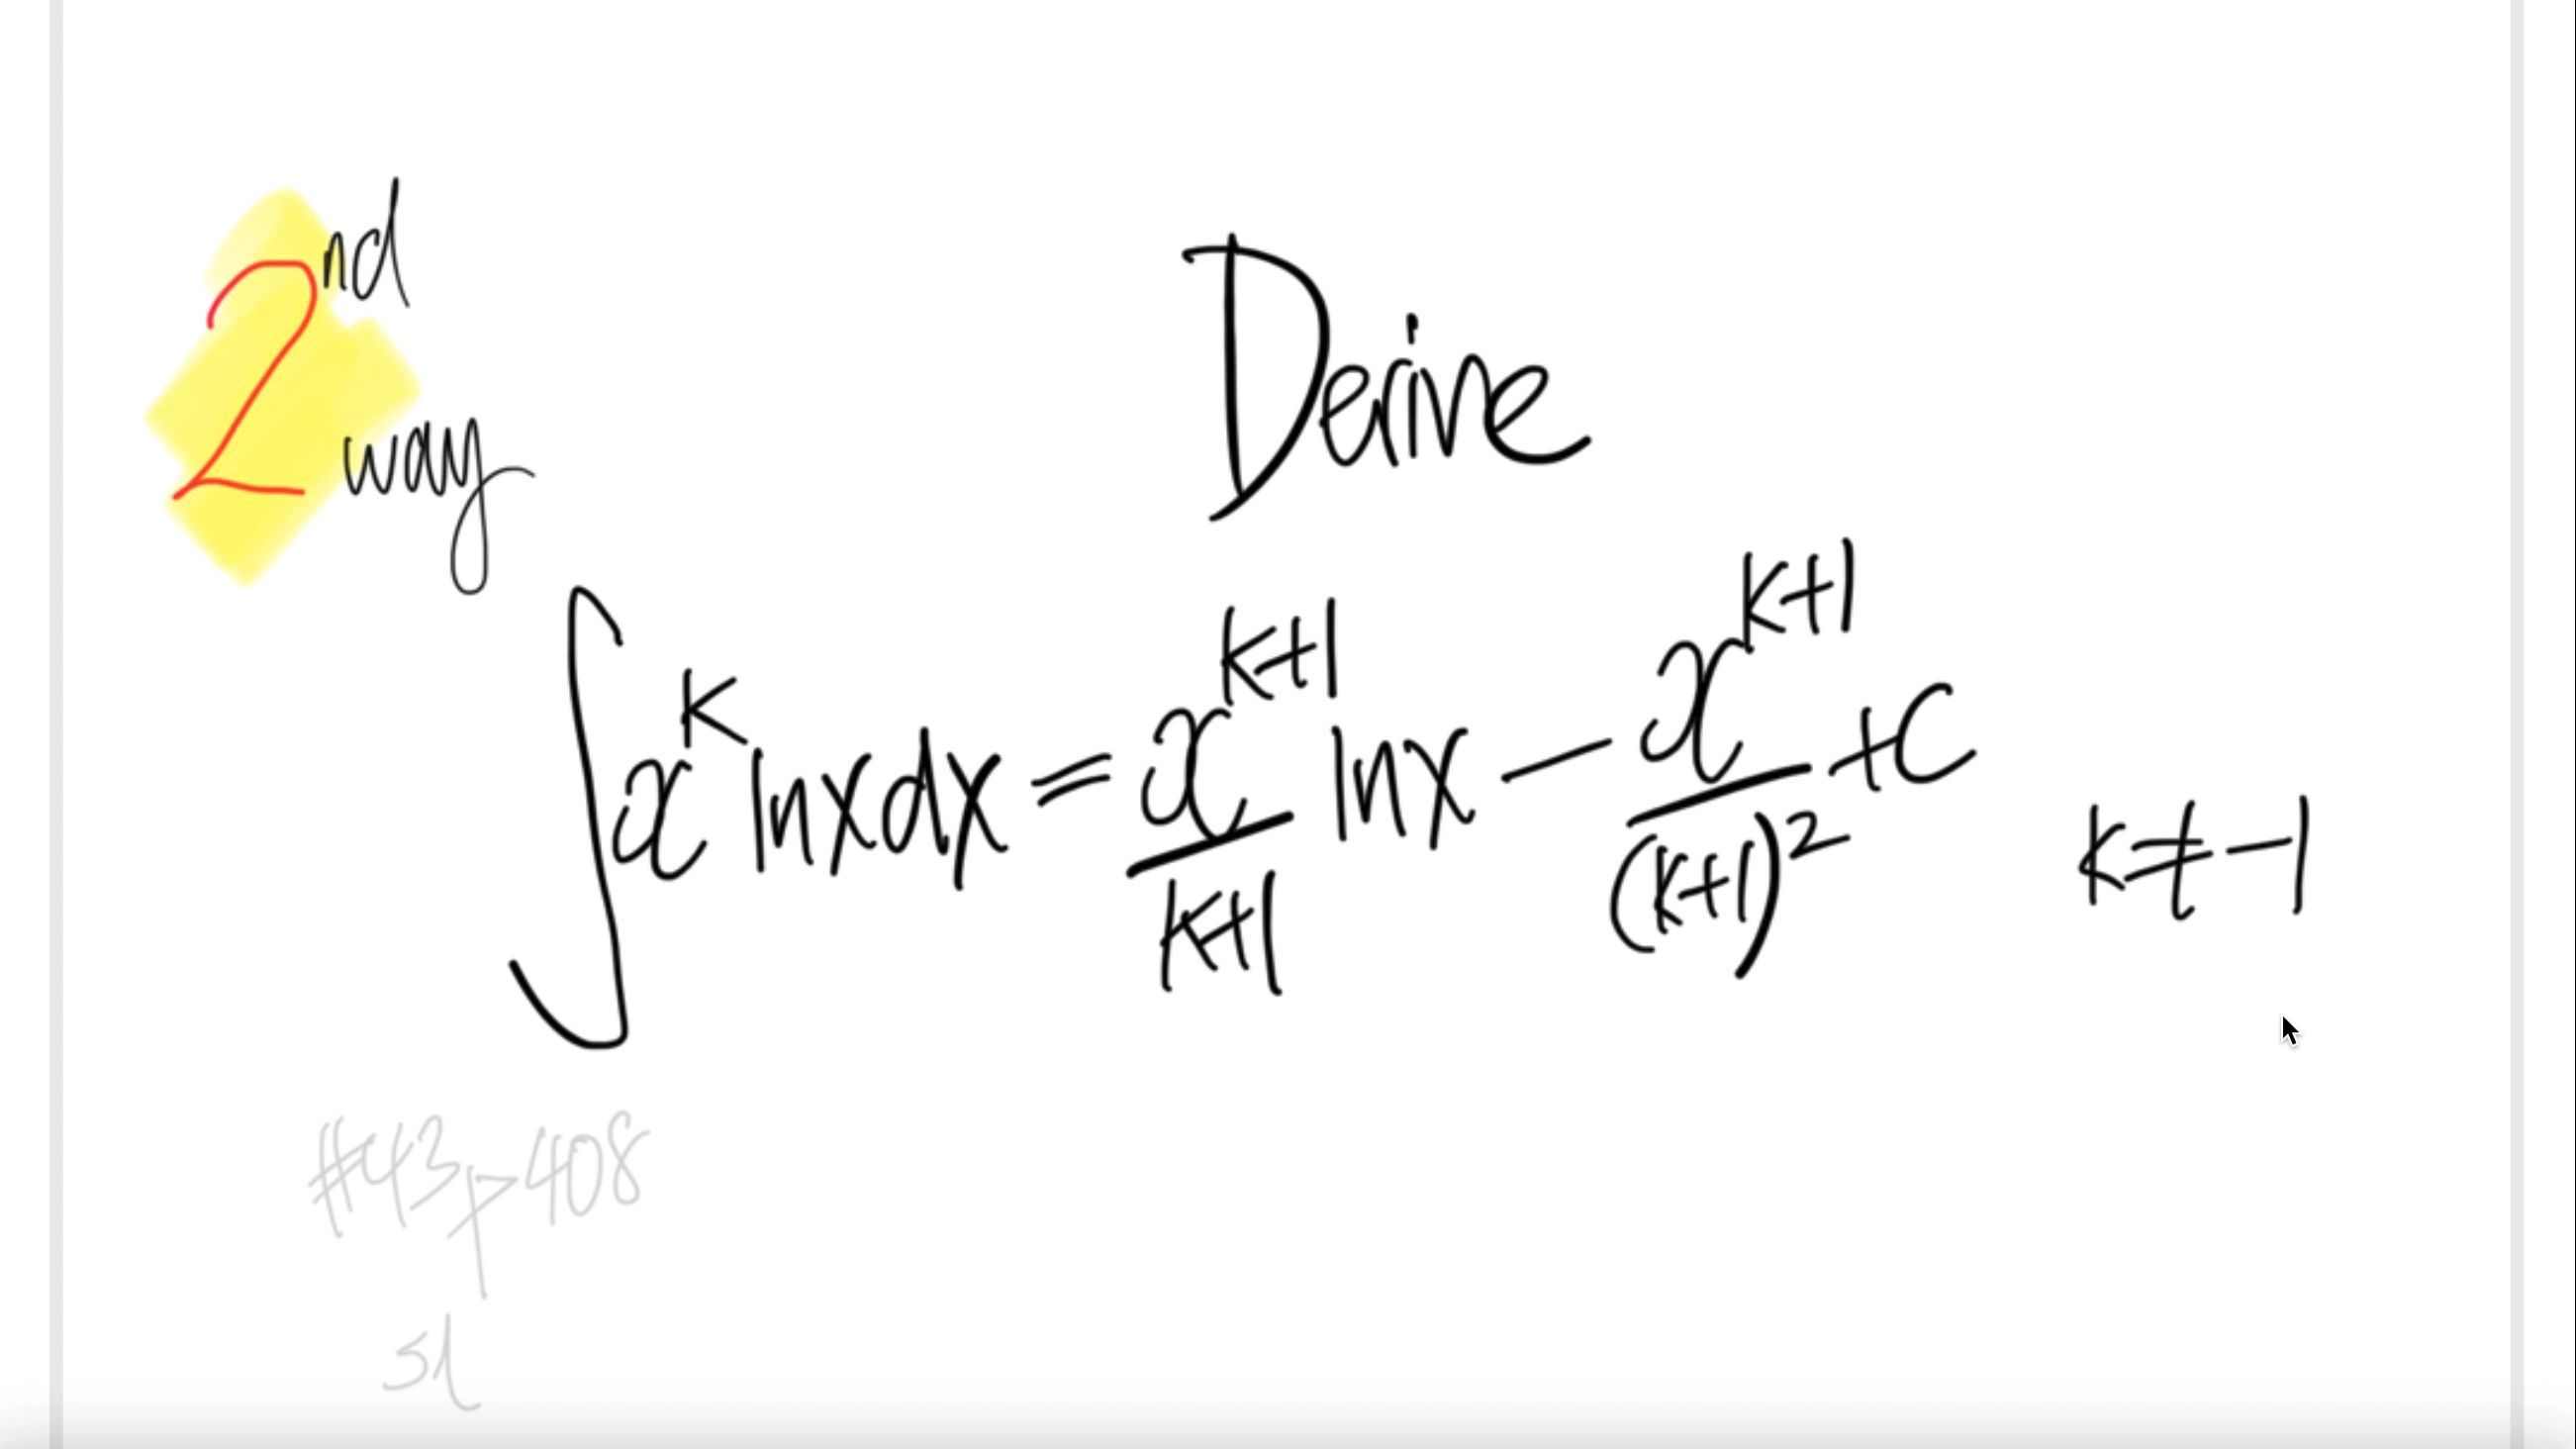 2nd
way
Derive
∫x^k lnxdx = x^(k+1)/(k+1) lnx − x^(k+1)/(k+1)^2 + C k≠−1
#43 p408
51